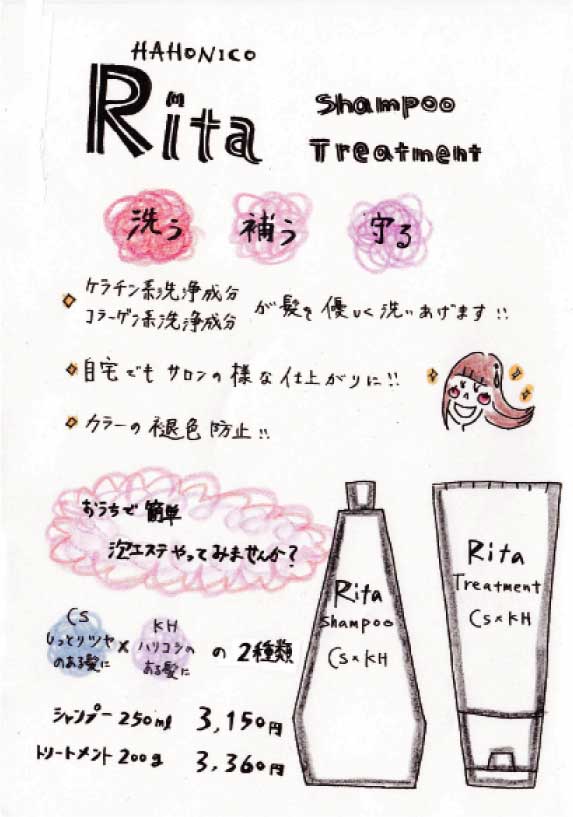 HAHONICO
Rita
Shampoo
Treatment
洗う 補う 守る
ケラチン系洗浄成分
コラーゲン系洗浄成分
が髪を優しく洗いあげます!!
自宅でもサロンの様な仕上がりに!!
カラーの褪色防止!!
おうちで簡単
泡エステやってみませんか?
CS
しっとりツヤ
のある髪に
×
KH
ハリコシの
ある髪に
の2種類
シャンプー 250ml 3,150円
トリートメント 200g 3,360円
Rita
Shampoo
CS×KH
Rita
Treatment
CS×KH